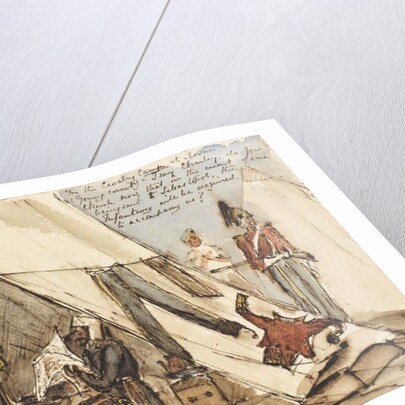 In the Cavalry Camp at
(Young cornet) - I say Charley do you
think now that in the event of our
being sent to Sebastopol, the
Infantry will be required
to accompany us?